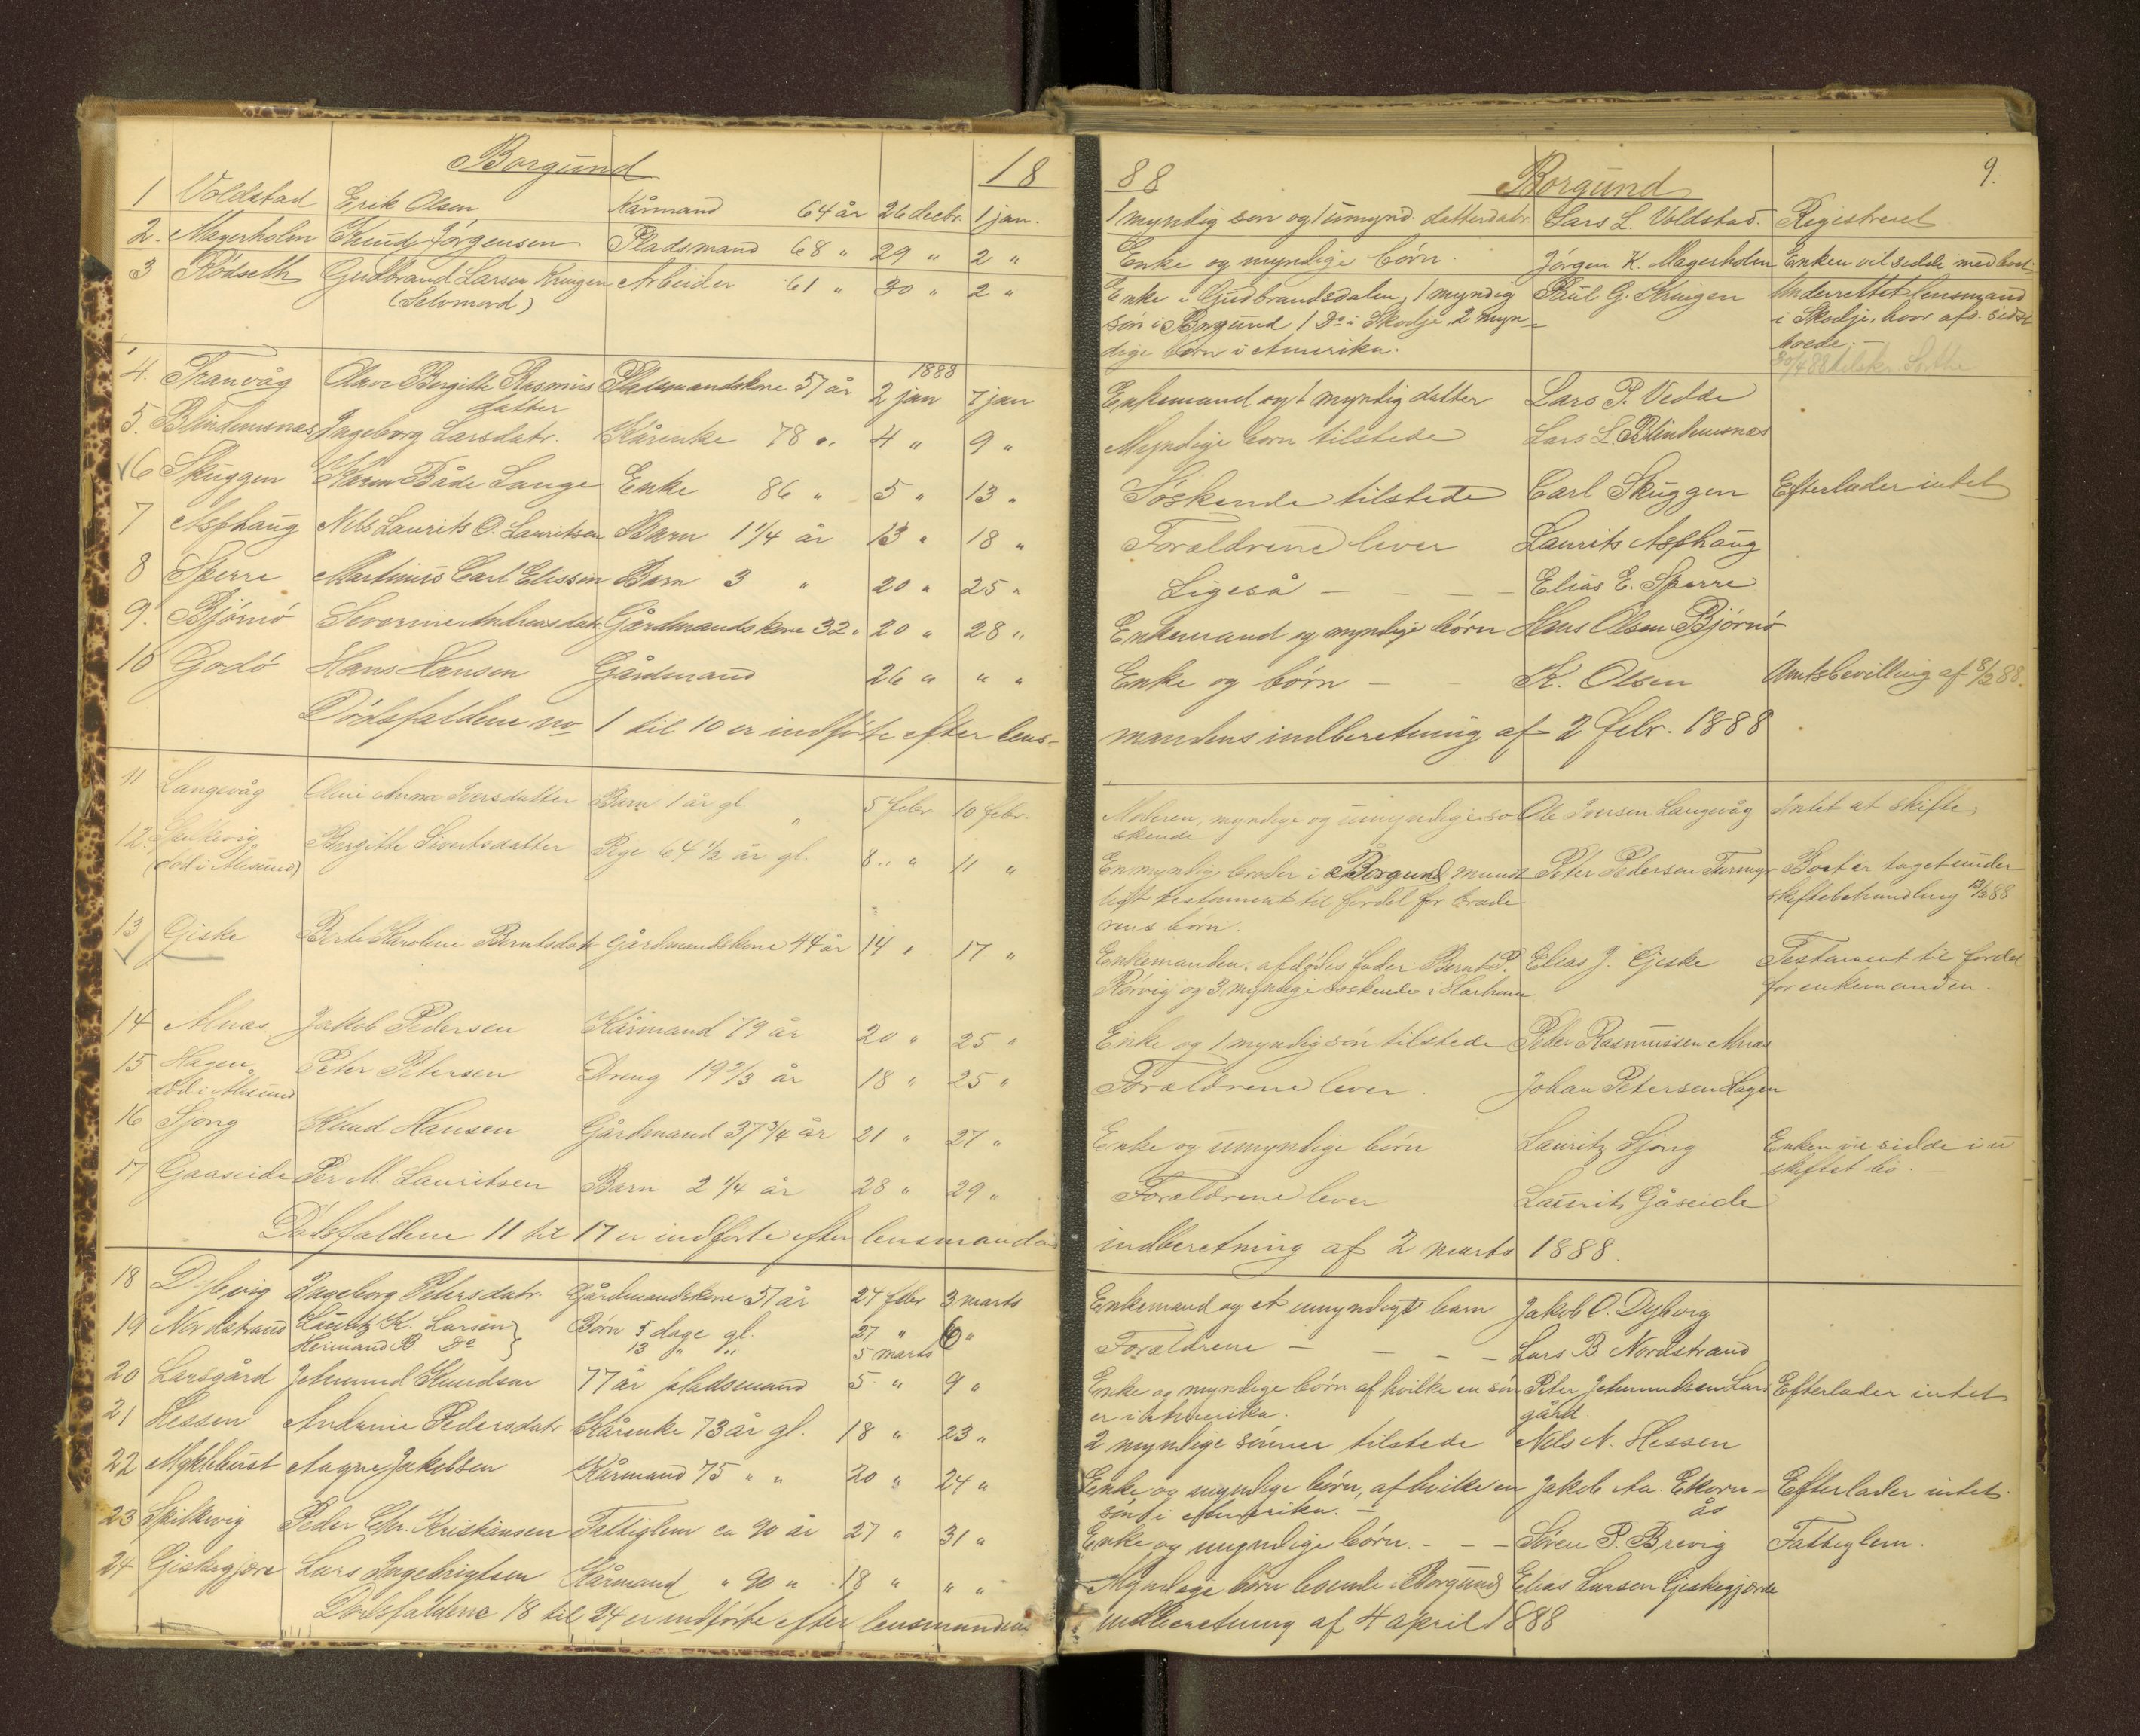 Borgund 18
1 Voldstad Erik Olsen Kårmand 64 år 26 decbr. 1 jan.
2. Magerholm Knud Jørgensen Pladsmand 68 " 29 " 2 "
3 Rødseth Gudbrand Larsen Kringen Arbeider 61 " 30 " 2 "
(Selvmord)
1888
4. Tranvåg Olave Bergitte Rasmus Pladsmandskone 57 år 2 jan 7 jan
datter
5. Blindemsnæs Ingeborg Larsdatr. Kårenke 78 " 4 " 9 "
6 Skuggen Karen Både Lange Enke 86 " 5 " 13 "
7 Asphaug Nils Laurits O. Lauritsen Barn 1 1/4 år 13 " 18 "
8 Sperre Martinus Carl Elissen Barn 3 " 20 " 25 "
9. Bjørnø Severine Andreasdatr Gårdmandskone 32 " 20 " 28 "
10 Godø Hans Hansen Gårdmand 26 " " "
Dødsfaldene no 1 til 10 er indførte efter lens-
11 Langevåg Oline Anna Iversdatter Barn 1 år gl " 5 febr 10 febr.
12. Spilkevig Bergitte Sivertsdatter Pige 64 1/2 år gl. 8 " " 11 "
(død i Ålesund)
13 Giske Berte Karoline Berntsdatr Gårdmandskone 44 år 14 " 17 "
14 Alnæs Jakob Pedersen Kårmand 79 år 20 " 25 "
15 Hagen Peter Petersen Dreng 19 2/3 år 18 " 25 "
død i Ålesund
16 Gjøng Knud Hansen Gårdmand 37 3/4 år 21 " 27 "
17 Gaaseide Per M. Lauritsen Barn 2 1/4 år 28 " 29 "
Dødsfaldene 11 til 17 er indførte efter lensmandens
18 Dybvig Ingeborg Petersdatr. Gårdmandskone 51 år 24 febr 3 marts
19 Nordstrand Lauritz K. Larsen Børn 5 dage gl. 27 " 6 "
Hermand B. Do 13 " " 5 marts
20 Larsgård Jehmund Knudsen 77 år pladsmand 5 " 9 "
21 Hessen Andrine Pedersdatr Kårenke 73 år gl. 18 " 23 "
22 Myklebust Aagne Jakobsen Kårmand 75 " " 20 " 24 "
23 Spilkevig Peder Chr. Kristiansen Fattiglem ca 90 år 27 " 31 "
24 Giskegjøre Lars Ingebrigtsen Kårmand " 90 " 18 " " "
Dødsfaldene 18 til 24 er indførte efter lensmandens
88 Borgund 9.
1 myndig søn og 1 umynd. datterdatr. Lars L. Voldstad. Registreret
Enke og myndige børn. Jørgen K. Magerholm Enken vil sidde med boet
Enke i Gudbrandsdalen, 1 myndig Paul G. Kringen Underrettet lensmand
søn i Borgund 1 Do i Skodje, 2 myn- i Skodje, hvor afd. sidst
dige børn i Amerika. boede.
Enkemand og 1 myndig datter Lars P. Vedde
Myndige børn tilstede Lars L. Blindemsnæs
Søskende tilstede Carl Skuggen Efterlader intet
Forældrene lever Laurits Asphaug
Ligeså - - - - Elias E. Sperre
Enkemand og myndige børn Hans Olsen Bjørnø
Enke og børn - - K. Olsen Amtsbevilling af 8/2 88.
mandens indberetning af 2 febr. 1888
Moderen, myndige og umyndige sø Ole Iversen Langevåg Intet at skifte
skende
En myndig broder i Borgund mundt Peter Pedersen Boet er taget under
ligt testament til fordel for brode skiftebehandling 13/3 88
rens børn.
Enkemanden, afdødes fader Bernt P. Elias J. Giske Testament til fordel
Rørvig og 3 myndige søskende i Harham for enkemanden.
Enke og 1 myndig søn tilstede Peder Rasmussen Alnæs
Forældrene lever. Johan Petersen Hagen
Enke og umyndige børn Lauritz Gjøng Enken vil sidde i u
skiftet bo.
Forældrene lever Laurits Gåseide
indberetning af 2 marts 1888.
Enkemand og et umyndigt barn Jakob O. Dybvig
Forældrene - - - - Lars B Nordstrand
Enke og myndige børn af hvilke en søn Peter Jehmundsen Lars Efterlader intet
er i Amerika. gård.
2 myndige sønner tilstede Nils N. Hessen
Enke og myndige børn, af hvilke en Jakob Aa. Ekorn- Efterlader intet.
søn i Amerika. - ås
Enke og myndige børn. - - - Søren P. Brevig Fattiglem.
Myndige børn boende i Borgund Elias Larsen Giskegjøre
indberetning af 4 april 1888